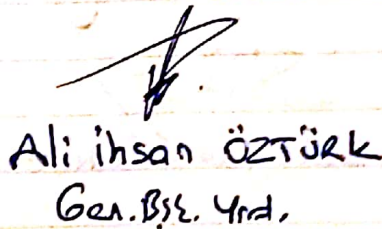 Ali ihsan ÖZTÜRK
Gen. Bşk. Yrd.